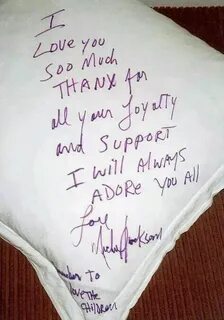 I
Love you
Soo Much
THANX for
all your Loyalty
and SUPPORT
I will Always
ADORE you All
Love
Michael Jackson
to
Love The
Children